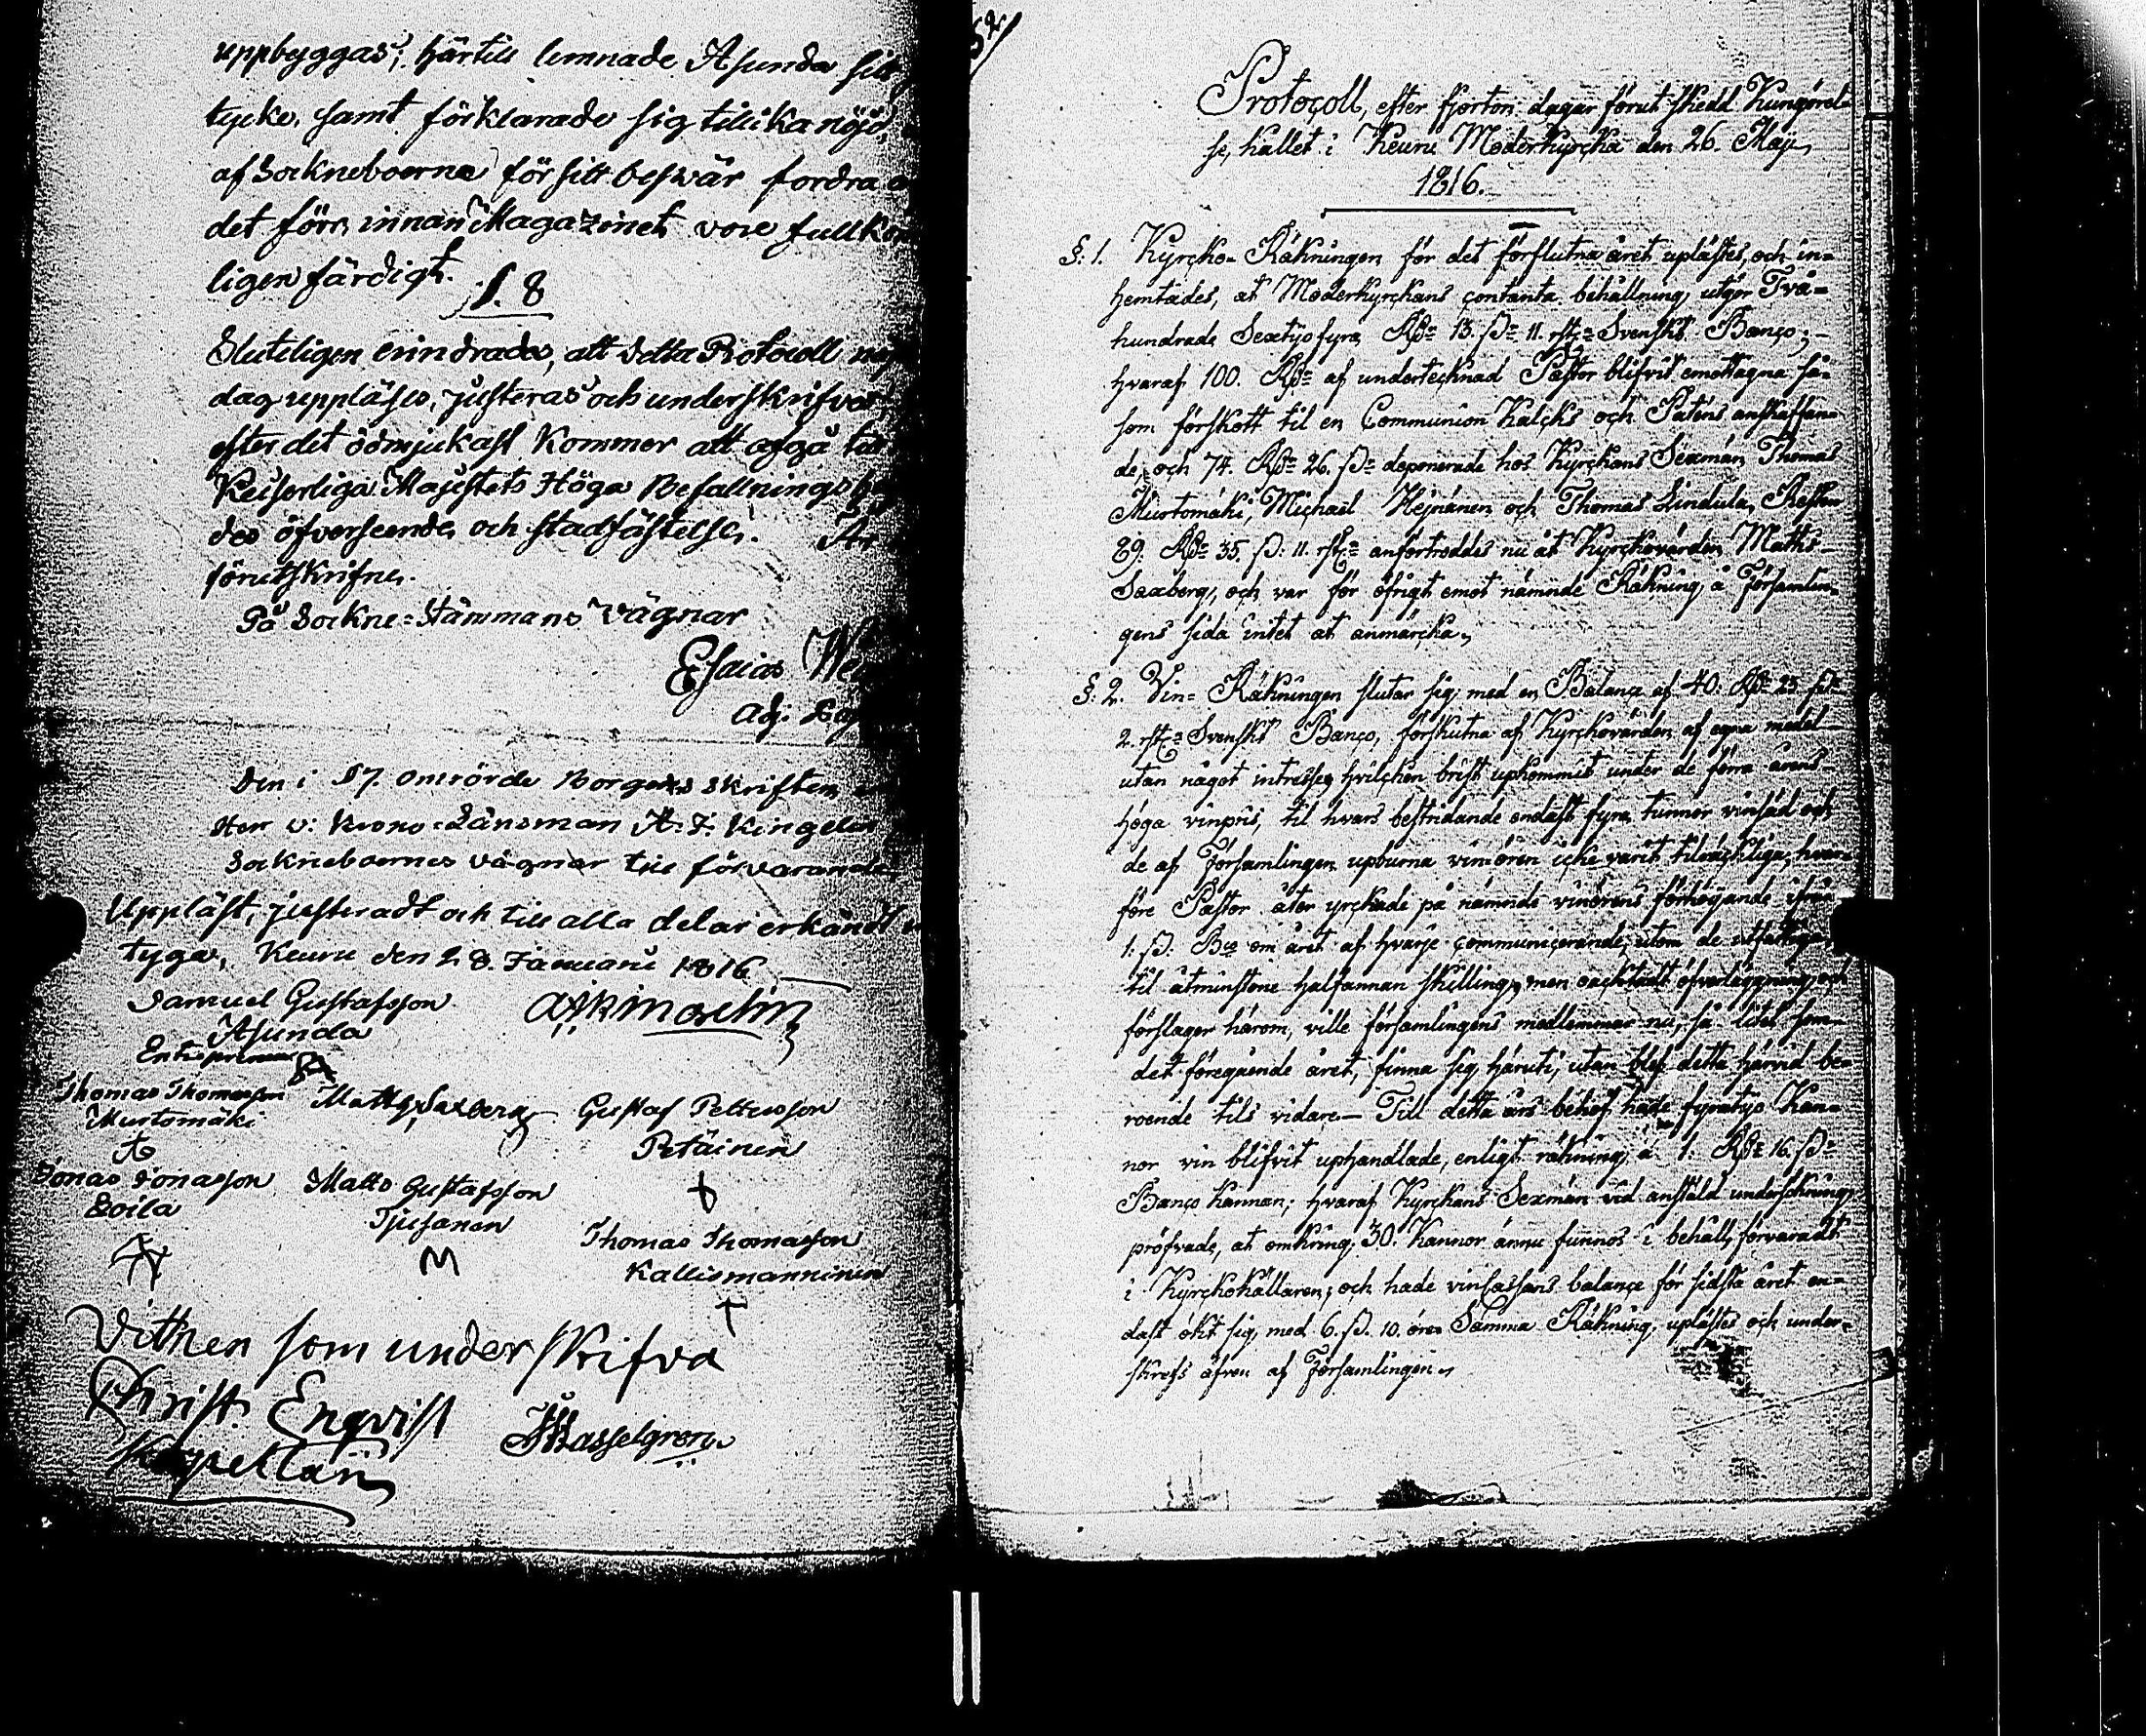 uppbyggas; härtill lemnade Asunda sitt
tycke, samt förklarade sig tillika nöjd,
af Sockneboerne för sitt beswär fordra
det förr, innan Magazinet vore fullkom
ligen färdigt.
§. 8
Sluteligen erindrades, att detta Protocoll
dag uppläses, justeras och underskrifves,
efter det ödmjukast kommer att afgå till
Keiserliga Majestets Höga Befallnings
des öfverseende och stadfästelse. År
förutskrifne.
På Sockne-Stämmans vägnar
Esaias We
Adj.
Den i §7. omrörde Borgens skriften
Herr v: Krono-Länsman A: F. Kingelin
Sockneboernes vägnar till förvarande.
Uppläst, justeradt och till alla delar erkändt
tyga, Keuru den 28. Januarii 1816
Samuel Gustafsson
Asunda
Entrepreneur
Thomas Thomasson
Murtomäki
Matts Saxberg
Gustaf Pettersson
Petäinen
Jonas Jonasson
Soila
Matts Gustafsson
Tjusanen
M
Thomas Thomasson
Kallismanninen
Vittnen som underskrifva
Christ. Enqvist
Kapellan
Hasselgren
Protocoll, efter fjorton dagar förut skedd Kungörel-
se, hållet i Keuru Moderkyrcka den 26. Maji
1816.
§. 1. Kyrcko-Räkningen för det förflutna året uplästes, och in-
hemtades, at Moderkyrckans contanta behållning utgör Två-
hundrade Sextijofyra Rd:r 13. ß:r 11. rst:r Svenskt Banco;
hvaraf 100. Rd:r af undertecknad Pastor blifvit emottagna så-
som förskott til en Communion Kalcks och Paténs anskaffan-
de, och 74. Rd:r 26. ß:r deponerade hos Kyrckans Sexmän Thomas
Murtomäki, Michaël Hejnänen och Thomas Lindula, Resten
89. Rd:r 35. ß: 11. rst:r anförtroddes nu åt Kyrckovärden Matts
Saxberg, och var för öfrigt emot nämnde Räkning å Församlin-
gens sida intet at anmärcka.
§. 2. Vin-Räkningen slutar sig med en Balance af 40. Rd:r 23 ß:r
2. rst:r Svenskt Banco, förskutna af Kyrckovärden af egna medel
utan något intresse, hvilcken brist upkommit under de förra årens
höga vinpris, til hvars bestridande endast fyra tunnor vinsäd och
de af Församlingen upburna vinören icke varit tilräckliga, hvar-
före Pastor åter yrckade på nämnde vinörens förhögande ifrån
1. ß: Bco om året af hvarje communicerande, utom de utfattiga,
til åtminstone halfannan skilling, men oacktadt öfverläggning och
förslager härom, ville församlingens medlemmar nu, så litet som
det föregående året, finna sig häruti, utan blef detta härvid be-
roende tils vidare. Till detta års behof hade fyratijo Kan-
nor vin blifvit uphandlade, enligt räkning, á 1. Rd:r 16. ß:r
Banco kannan; hvaraf Kyrckans Sexmän vid anstäld undersökning
pröfvade, at omkring 30. Kannor ännu funnos i behåll, förvaradt
i Kyrckokällaren; och hade vinkassans balance för sidsta året en-
dast ökt sig med 6. ß. 10. öre. Samma Räkning uplästes och under-
skrefs äfven af Församlingen.